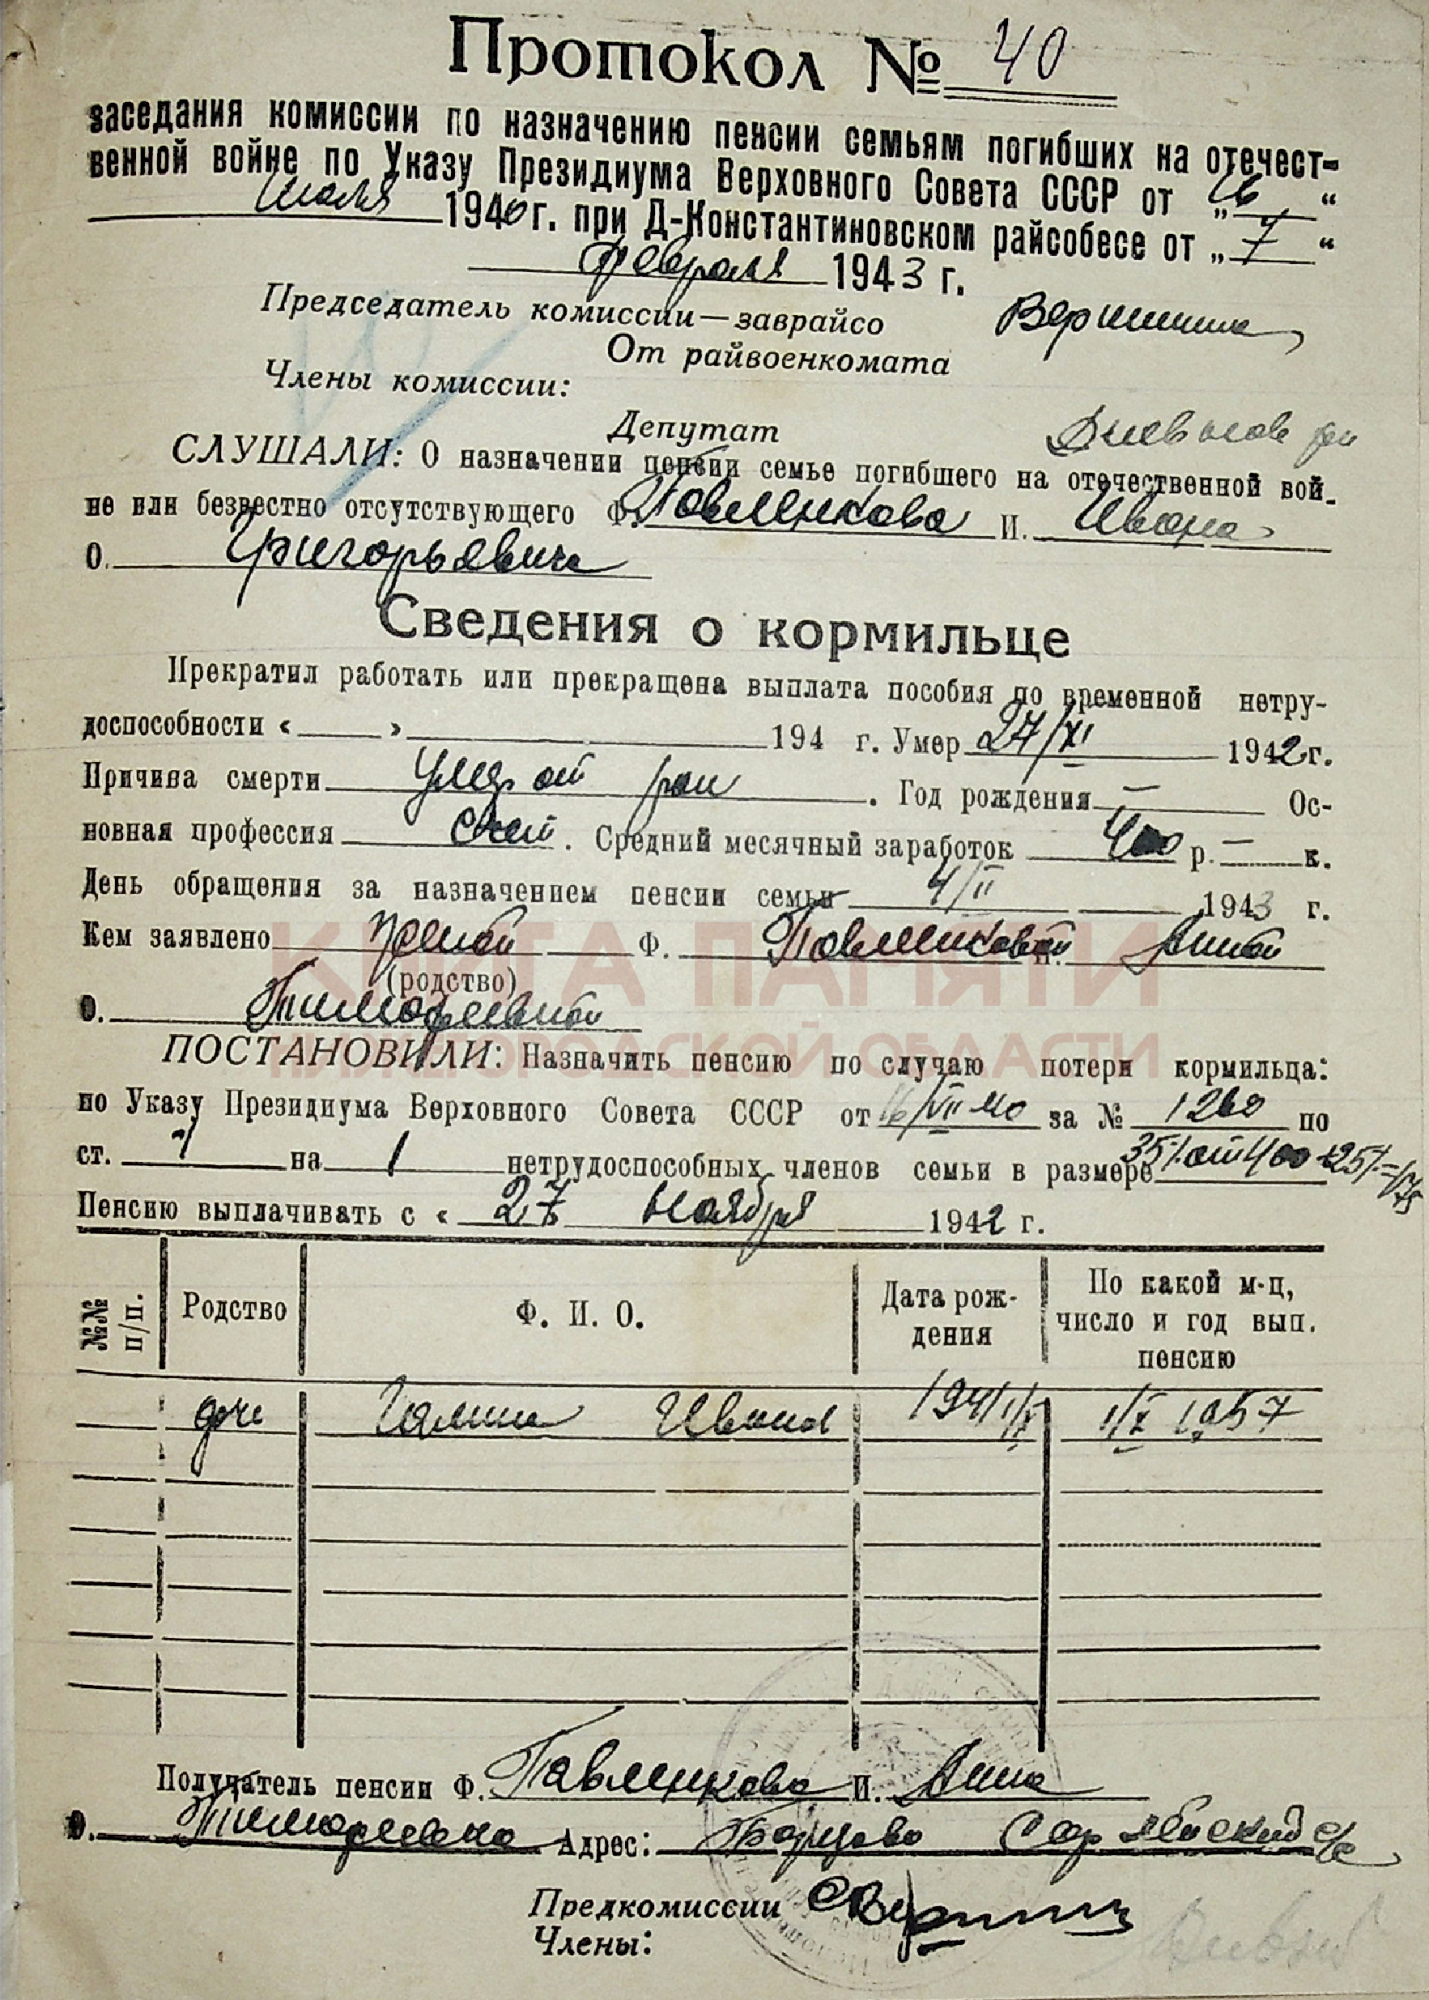 Протокол № 40
заседания комиссии по назначению пенсии семьям погибших на отечест-
венной войне по Указу Президиума Верховного Совета СССР от „16“
июля 1940 г. при Д-Константиновском райсобесе от „7“
февраля 1943 г.
Председатель комиссии—заврайсо Вершинина
От райвоенкомата
Члены комиссии:
Депутат
СЛУШАЛИ: О назначении пенсии семье погибшего на отечественной вой-
не или безвестно отсутствующего Ф. Павленкова И. Ивана
О. Григорьевича
Сведения о кормильце
Прекратил работать или прекращена выплата пособия по временной нетру-
доспособности « » 194 г. Умер 27/XI 1942 г.
Причина смерти умер от ран . Год рождения — Ос-
новная профессия . Средний месячный заработок 400 р. — к.
День обращения за назначением пенсии семьи 4/II 1943 г.
Кем заявлено женой Ф. Павленковой И. Анной
(родство)
О. Тимофеевной
КНИГА ПАМЯТИ
НИЖЕГОРОДСКОЙ ОБЛАСТИ
ПОСТАНОВИЛИ: Назначить пенсию по случаю потери кормильца:
по Указу Президиума Верховного Совета СССР от 16/VII 40 за № 1260 по
ст. 7 на 1 нетрудоспособных членов семьи в размере 35% от 400 +25%=175
Пенсию выплачивать с « 27 ноября 1942 г.
№№ п/п. Родство Ф. И. О. Дата рож-дения По какой м-ц, число и год вып. пенсию
дочь Галина Ивановна 1941 1/X 1/X 1957
Получатель пенсии Ф. Павленкова И. Анна
О. Тимофеевна Адрес: Борцово с/с
Предкомиссии
Члены: